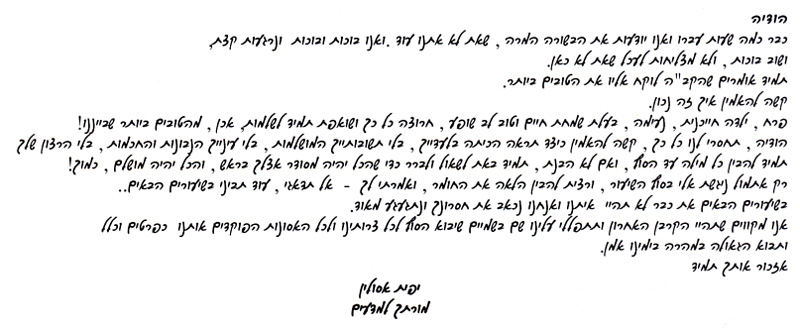 הודיה
כבר כמה שעות עברו ואנו יודעות את הבשורה המרה , שאת לא אתנו עוד .ואנו בוכות ובוכות ונרגעות קצת,
ושוב בוכות , ולא מצליחות לעכל שאת לא כאן.
תמיד אומרים שהקב"ה לוקח אליו את הטובים ביותר.
קשה להאמין איך זה נכון.
פרח , ילדה חייכנית , נעימה , בעלת שמחת חיים וטוב לב שופע , חרוצה כל כך ושואפת תמיד לשלמות, אכן , מהטובים ביותר שביננו!
הודיה , תחסרי לנו כל כך , קשה להאמין כיצד תראה הכיתה בלעדייך , בלי תשובותייך המושלמות , בלי עינייך הנבונות והחכמות , בלי הרצון שלך
תמיד להבין כל מילה עד הסוף , ואם לא הבנת , תמיד באת לשאול ולברר כדי שהכל יהיה מסודר אצלך בראש , והכל יהיה מושלם , כמוך!
רק אתמול ניגשת אלי בסוף השיעור , ורצית להבין הלאה את החומר , ואמרתי לך - אל תדאגי , עוד תביני בשיעורים הבאים..
בשיעורים הבאים את כבר לא תהיי איתנו ואנחנו נכאב את חסרונך ונתגעגע מאוד.
אנו מקווים שתהיי הקרבן האחרון ותתפללי עלינו שם בשמיים שיבוא הסוף לכל צרותינו ולכל האסונות הפוקדים אותנו כפרטים וכלל
ותבוא הגאולה במהרה בימינו אמן.
אזכור אותך תמיד
יפית אסולין
מורתך למדעים